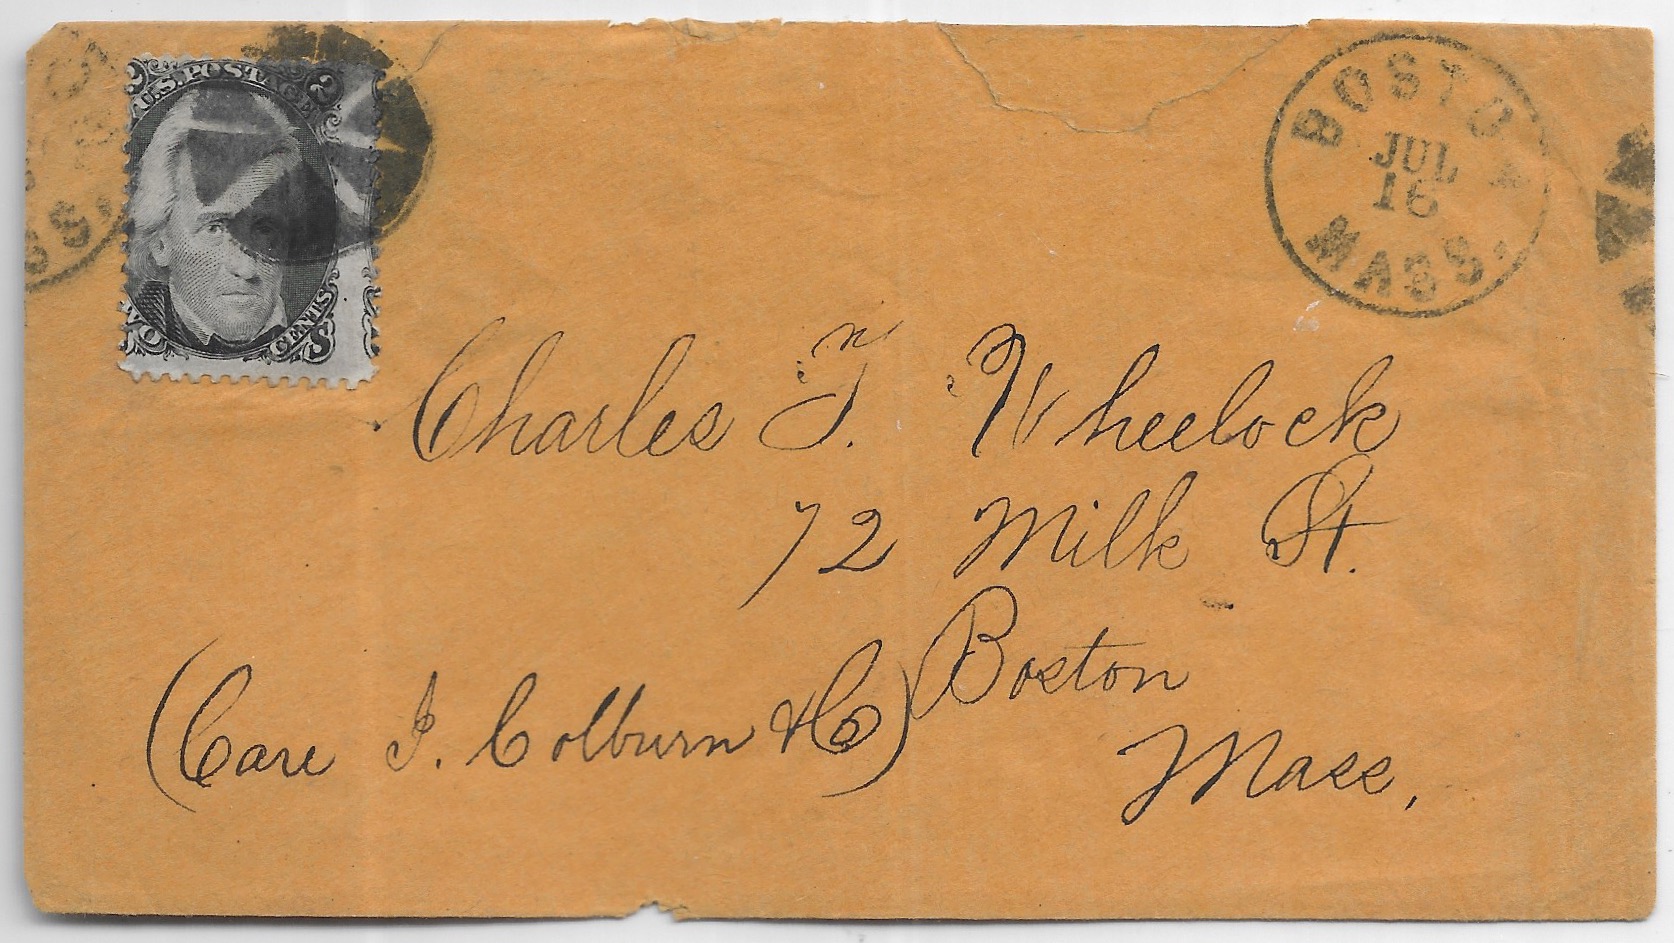 U.S. POSTAGE
2 2
CENTS
BOSTON
JUL
16
MASS.
Charles T. Wheelock
72 Milk St.
Boston
Mass.
(Care I. Colburn & Co)